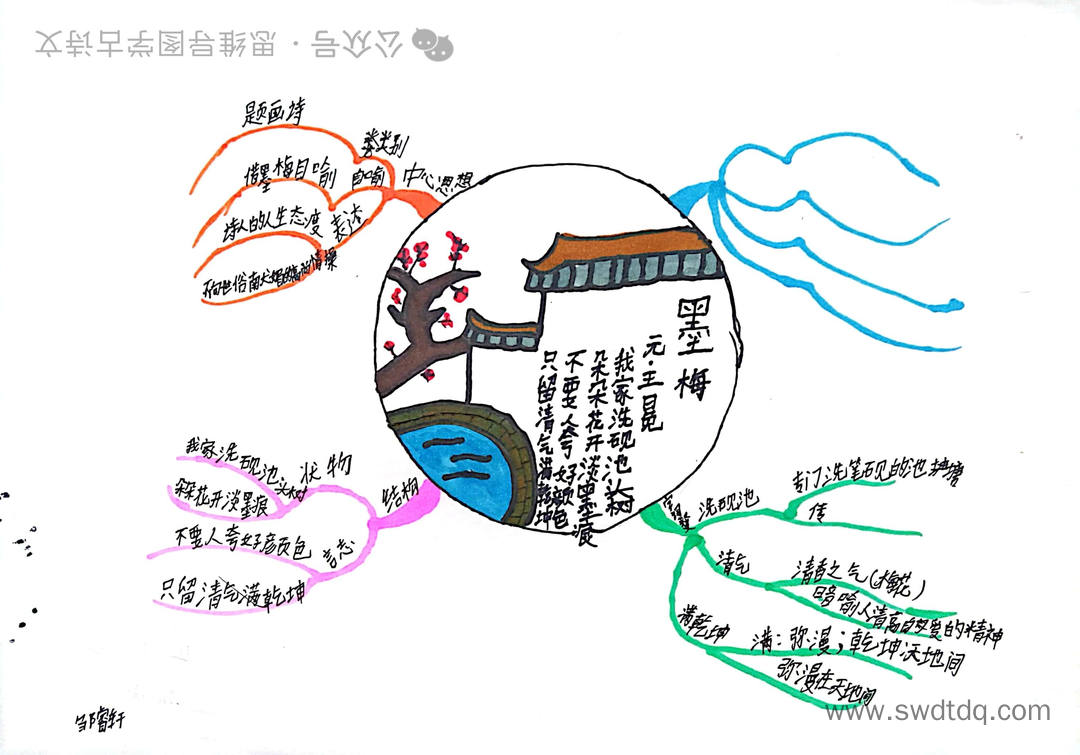 公众号·思维导图学古诗文
题画诗
类别
借墨梅自喻
自喻
中心思想
诗人的人生态度
表达
墨梅
元·王冕
我家洗砚池头树
朵朵花开淡墨痕
不要人夸好颜色
只留清气满乾坤
我家洗砚池头树
状物
朵朵花开淡墨痕
结构
不要人夸好颜色
言志
只留清气满乾坤
洗砚池
专门洗笔砚的池塘
传
清气
清香之气(梅花)
暗喻人清高自爱的精神
满乾坤
满：弥漫；乾坤天地间
弥漫在天地间
邹睿轩
www.swdtdq.com